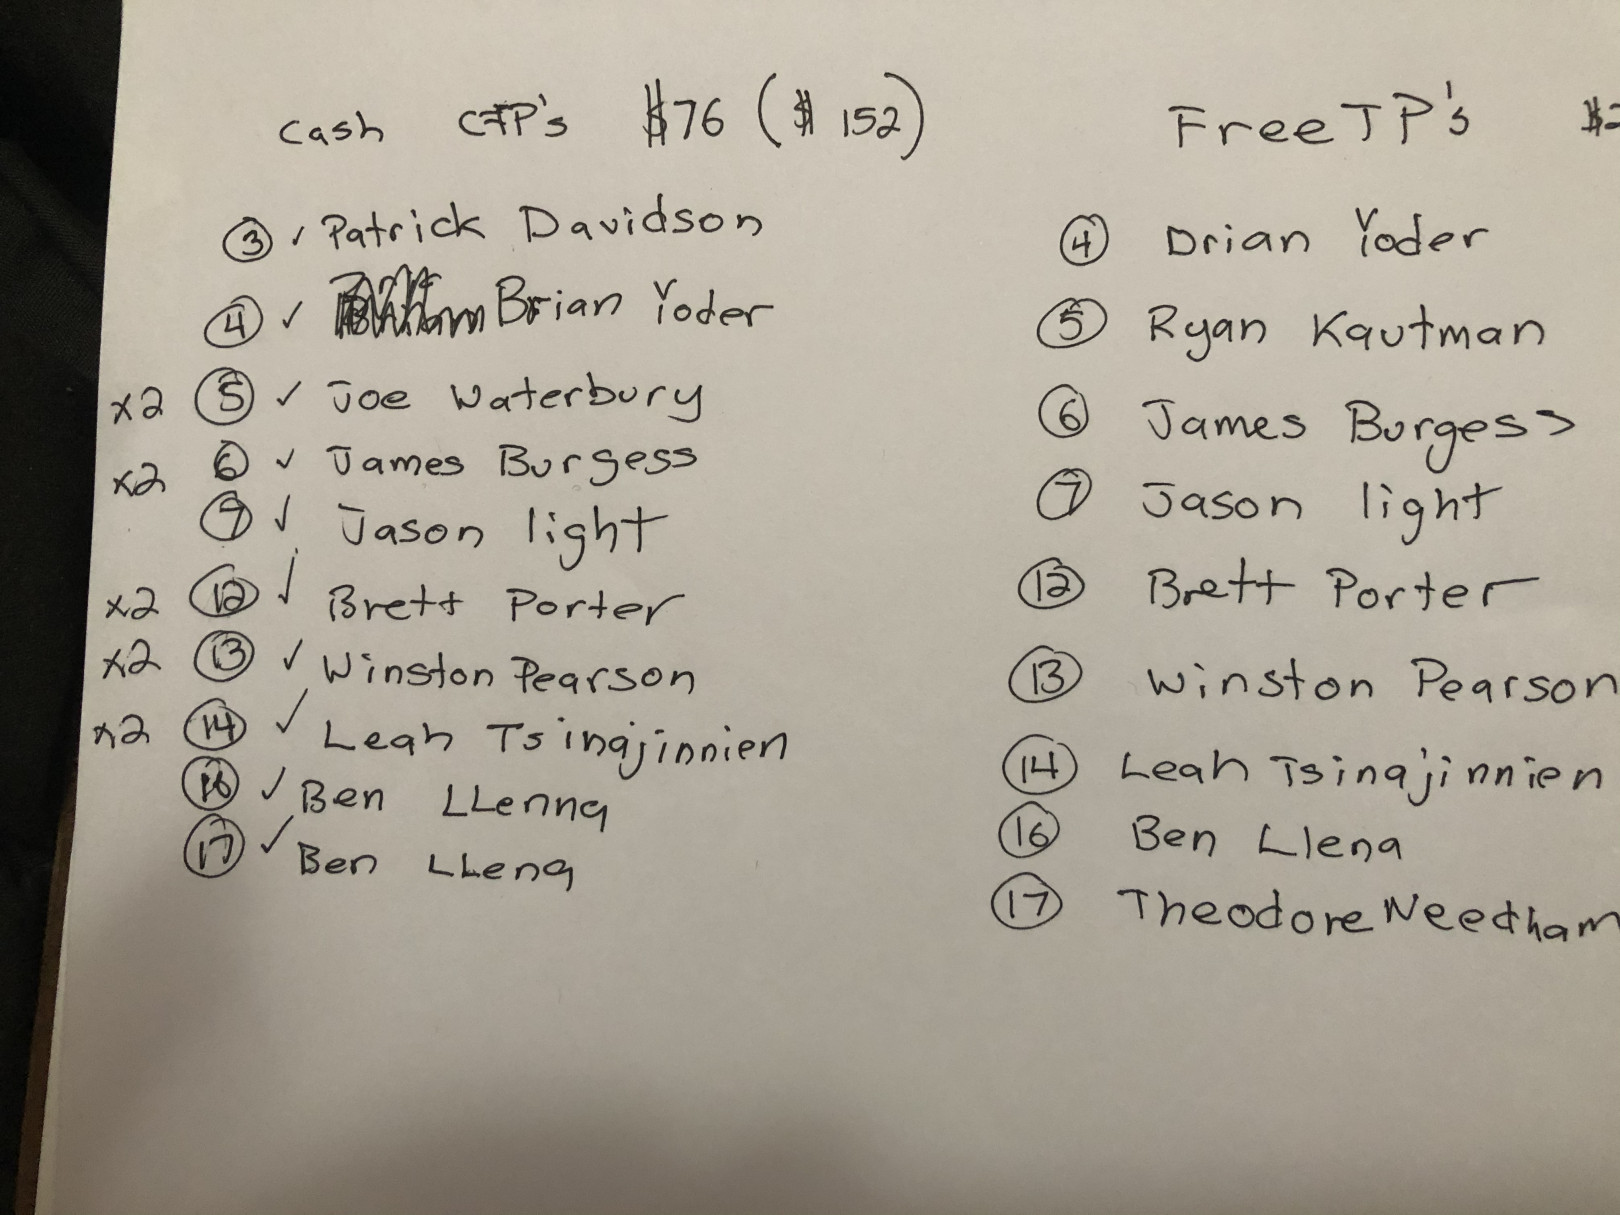 Cash CTP's $76 ($152)
③ ✓ Patrick Davidson
④ ✓ Brian Yoder
x2 ⑤ ✓ Joe Waterbury
x2 ⑥ ✓ James Burgess
⑦ ✓ Jason light
x2 ⑫ ✓ Brett Porter
x2 ⑬ ✓ Winston Pearson
x2 ⑭ ✓ Leah Tsinajinnien
⑯ ✓ Ben LLenna
⑰ ✓ Ben LLena
Free TP's $2
④ Drian Yoder
⑤ Ryan Kautman
⑥ James Burgess
⑦ Jason light
⑫ Brett Porter
⑬ Winston Pearson
⑭ Leah Tsinajinnien
⑯ Ben Llena
⑰ Theodore Needham